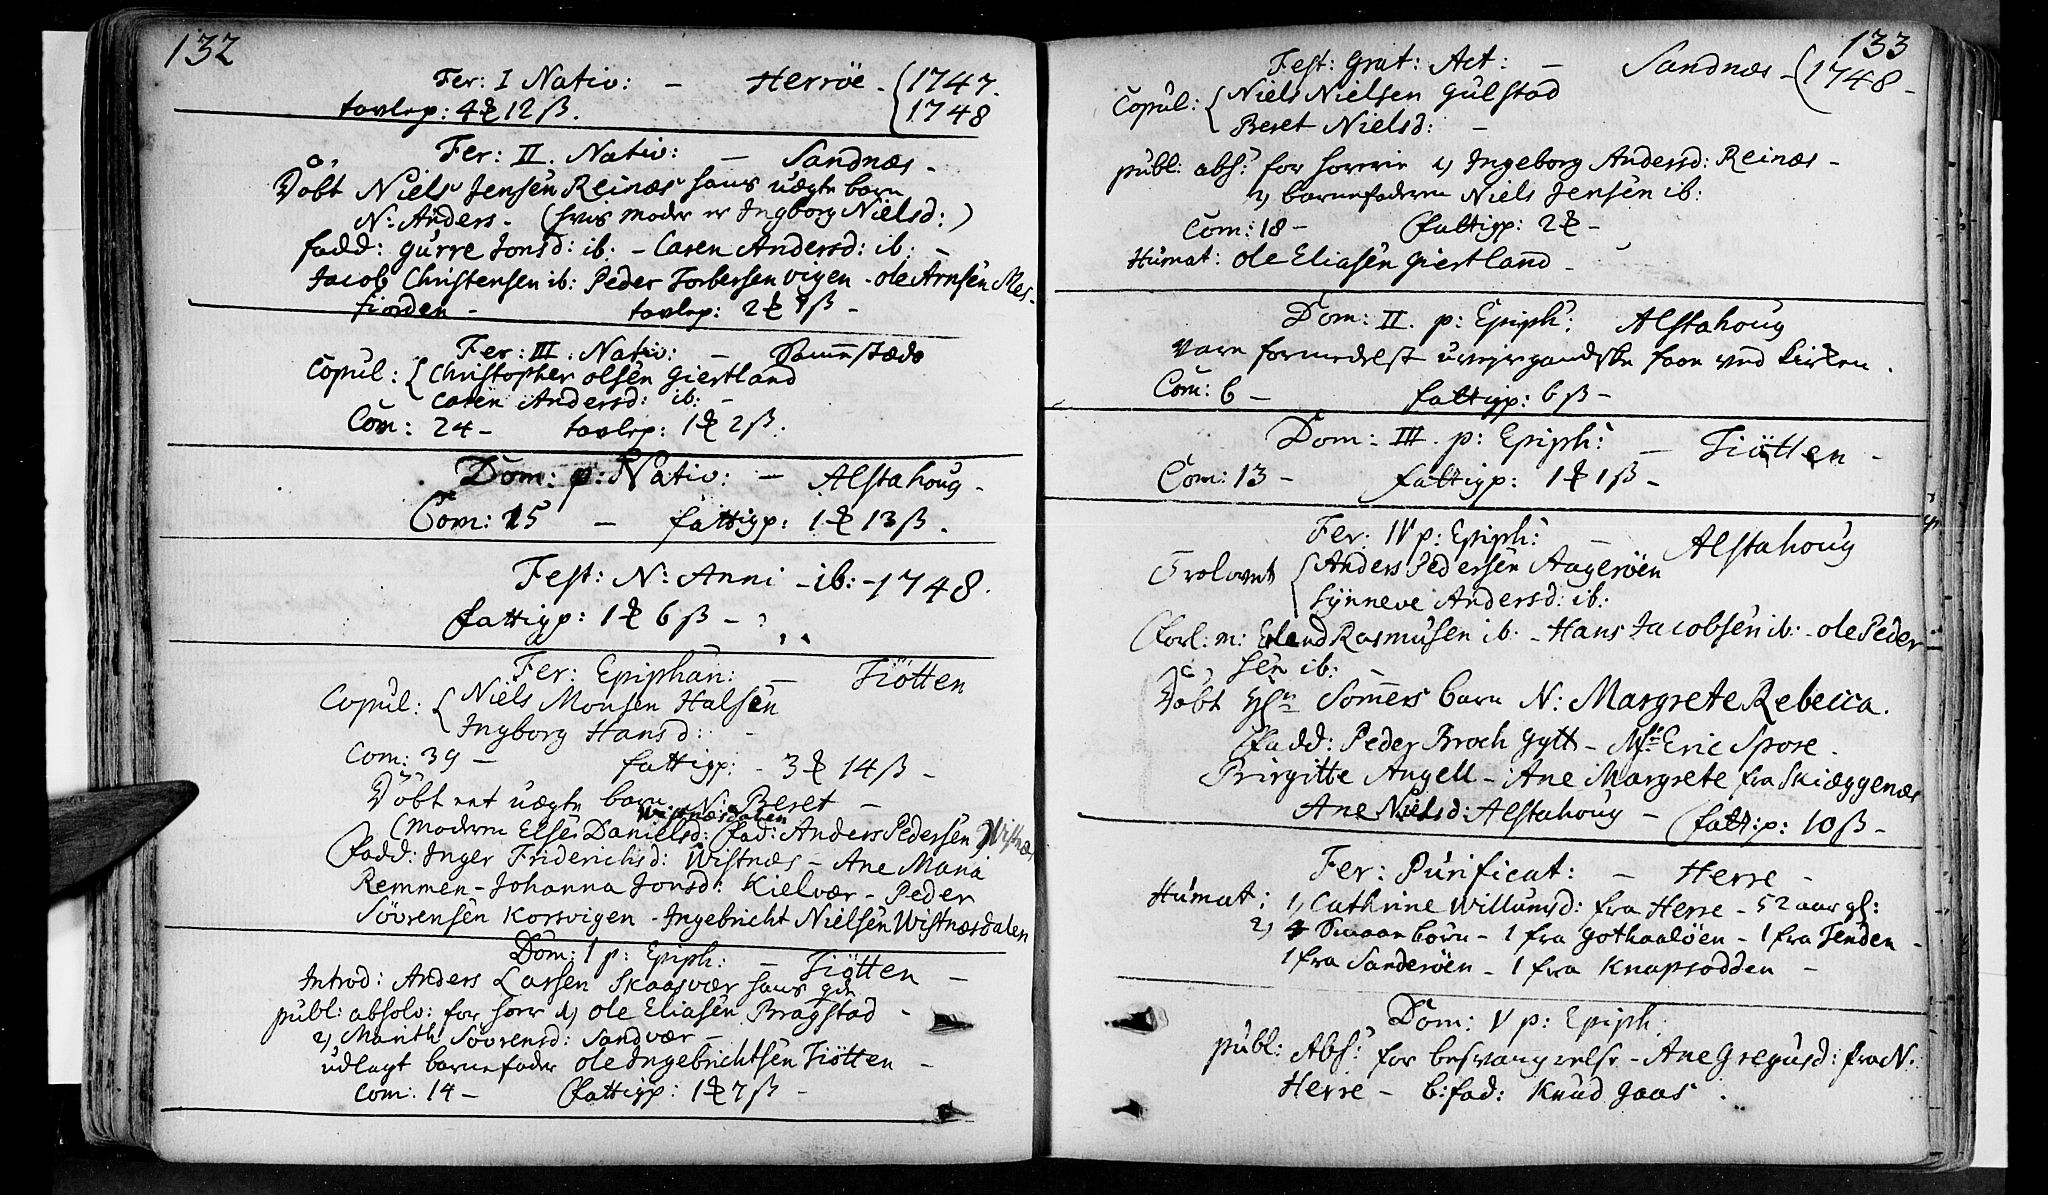 132
Fer: I Nativ: - Herröe - 1747.
tavlep: 4 12 ß. 1748
Fer: II. Nativ: - Sandnæs -
Döbt Niels Jensen Reinæs hans uægte barn
N: Anders - (hvis moder er Ingborg Nielsd:)
fadd: Gurre Jonsd: ib: - Caren Andersd: ib: -
Jacob Christensen ib: Peder Torbersen Vigen - Ole Arnsen Mes-
fiorden - tavlep: 2 8 ß -
Fer: III. Nativ: - Sammestæds
Copul: Christopher Olsen Giertland
Caren Andersd: ib: -
Com: 24 - tavlep: 1 2 ß.
Dom: p: Nativ: - Alstahoug -
Com: 15 - fattigp: 1 13 ß.
Fest: N: Anni - ib: - 1748.
fattigp: 1 6 ß -
Fer: Epiphan: - Tiötten
Copul: Niels Monsen Halsen
Ingborg Hansd: -
Com: 39 - fattigp: - 3 14 ß -
Döbt eet uægte barn N: Beret -
Wistnæsdalen
(Moderen Else Danielsd: fad: Anders Pedersen Wistnæs
fadd: Inger Friderichsd: Wistnæs - Ane Maria
Remmen - Johanna Jonsd: Kielvær - Peder
Sövrensen Korsvigen - Ingebricht Nielsen Wistnæsdalen
Dom: I p: Epiph: - Tiötten -
Introd: Anders Larsen Skaasvær hans
publ: absolv: for horr 1) Ole Eliasen Bragstad -
2) Marith Sövrensd: Sandvær -
udlagt barnefader Ole Ingebrichtsen Tiötten -
Com: 14 - fattigp: 1 7 ß -
133
Fest: Grat: Act: - Sandnæs - 1748 -
Copul: Niels Nielsen Gulstad
Beret Nielsd: -
publ: abs: for horerie 1) Ingeborg Andersd: Reinæs -
2) barnefaderen Niels Jensen ib:
Com: 18 - fattigp: 2 -
Humat: Ole Eliasen Giertland -
Dom: II. p: Epiph: Alstahoug
Vare formedelst uvejr gandske faae ved Kirken.
Com: 6 - fattigp: 6 ß -
Dom: III. p: Epiph: - Tiötten -
Com: 13 - fattigp: 1 1 ß -
Fer: IV p: Epiph: - Alstahoug
Trolovet Anders Pedersen Aageröen
Synneve Andersd: ib:
forl: m: Erlend Rasmusen ib. - Hans Jacobsen ib: - Ole Peder-
sen ib:
Döbt Sommers barn N: Margrete Rebecca.
fadd: Peder Broch Gytt - Eric Spore.
Birgitte Angell - Ane Margrete fra Skiæggenæs
Ane Nielsd: Alstahoug - fattigp: 10 ß -
Fer: Purificat: - Herre -
Humat: 1) Cathrine Willumsd: fra Herre - 52 aar gl:
2) 4 Smaae börn - 1 fra Gothaalöen - 1 fra Tenden -
1 fra Sanderöen - 1 fra Knapsodden -
Dom: V p: Epiph:
publ: Abs: for besvangrelse - Ane Gregusd: fra N:
Herre - b:fad: Knud Gaas.